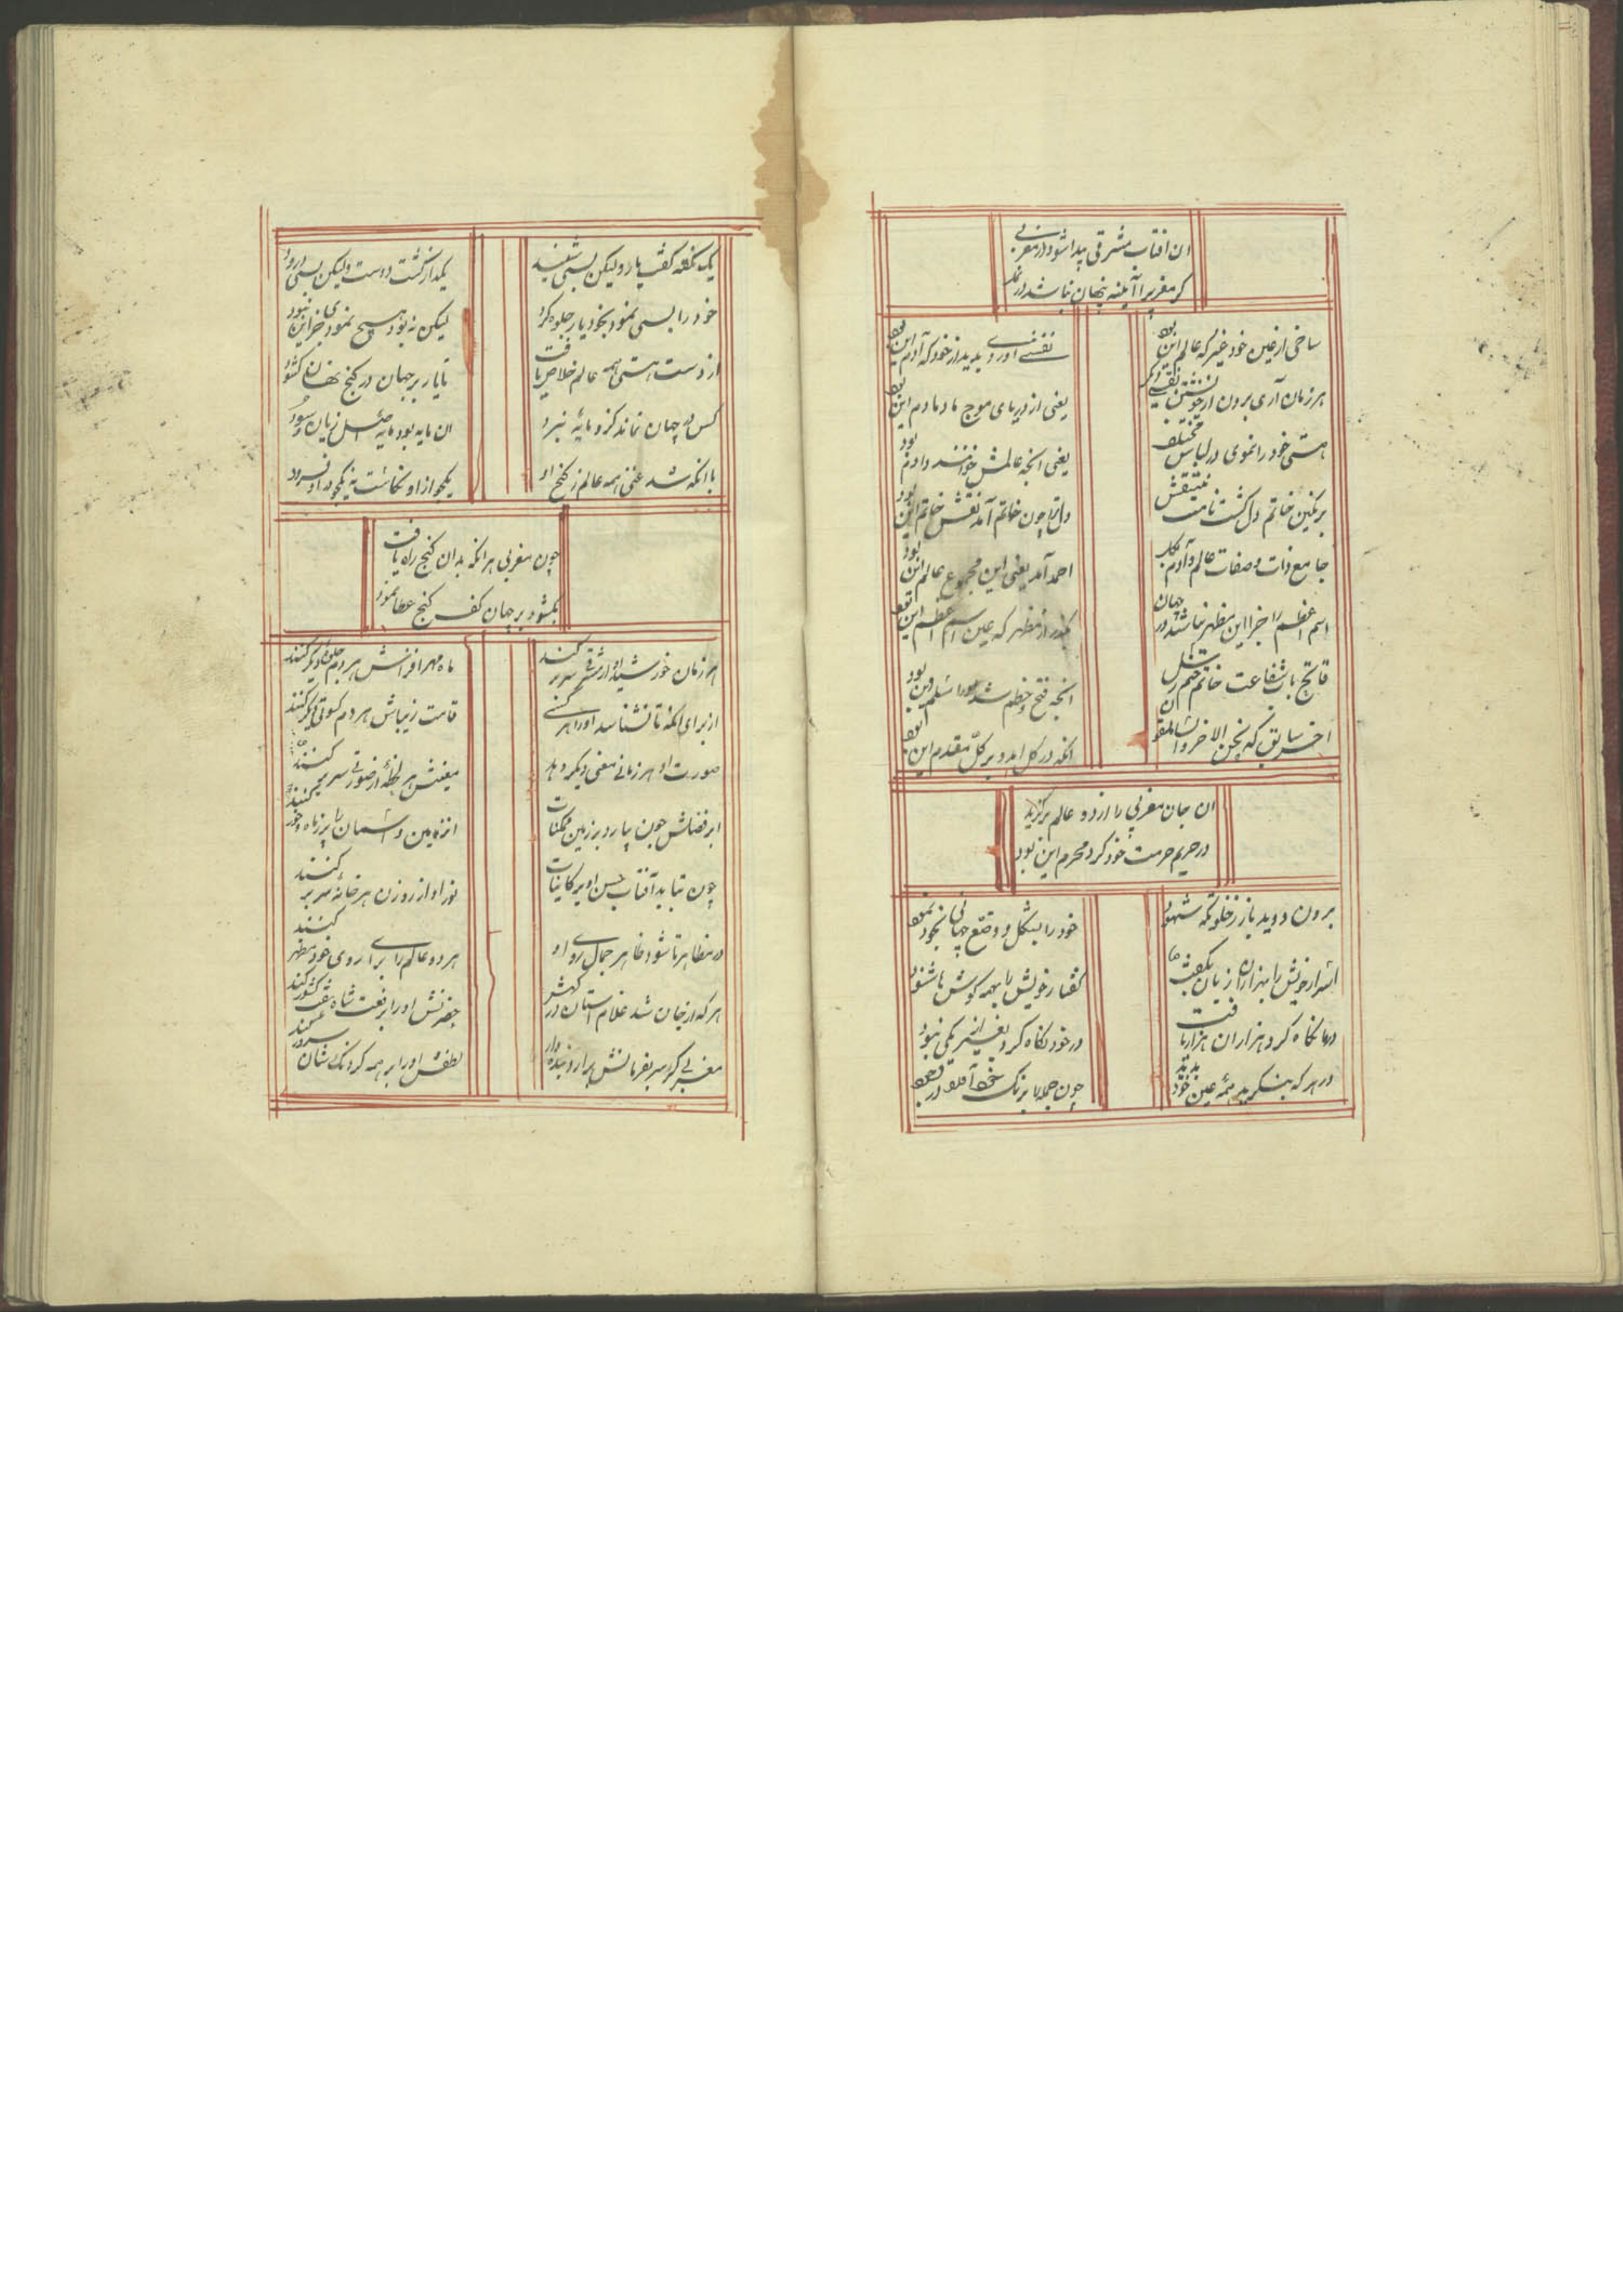 ان افتاب مشرقی پیدا شود در مغربی
گر مغربی را آئینه پنهان نباشد در نمد
ساختی از عین خود غیری که عالم این بود
نقشی آوردی پدید از خود که آدم این بود
هر زمان آری برون از خویشتن نقشی دگر
یعنی از دریای موج مادمادم این بود
هستی خود را نمودی در لباس مختلف
یعنی انچه عالمش خوانند و ادم بود
بر نگین خاتم دل گشت نامت منتقش
دل ترا چون خاتم آمد نقش خاتم این بود
جامع ذات و صفات عالم و آدم
احمد آمد یعنی این مجموع عالم این بود
اسم اعظم را جز این مظهر نباشد در جهان
بگذر از مظهر که عین اسم اعظم این بود
فاتح باب شفاعت خاتم ختم رسل
انچه فتح و ختم شد این بود
اخر سابق که نحن الاخرون السابقون
انکه در کل امد و بر کل مقدم این بود
ان جان مغربی را از دو عالم برگزید
در حریم حرمت خود کرد محرم این بود
برون دوید یار ز خلوتگه شهود
خود را بشکل و وضع جهانی بخود نمود
اسرار خویش را بهزاران زبان بگفت
گفتار خویش را بهمه گوش ها شنود
در ما نگاه کرد هزاران هزار یافت
در خود نگاه کرد بغیر از یکی نبود
در هر که بنگرید همه عین خود بدید
چون جمله را برنگ خود آمد در وجود
یک نکته گفت یار ولیکن بسی شنید
یکدانه کشت دوست ولیکن بسی درود
خود را بسی نمود بخود یار جلوه کرد
لیکن نبود هیچ نمودی جز این نبود
از دست هستی همه عالم خلاص یافت
تا یار بر جهان در گنج نهان کشود
کس در جهان نماند کزو مایهٔ نبرد
ان مایه بود مایه اصل زیان و سود
با انکه شد غنی همه عالم ز گنج او
یکجو از او نکاست نه یکجو در او فزود
چون مغربی هر انکه بدان گنج راه یافت
بکشود بر جهان کف گنج عطا نمود
هر زمان خورشید او از مشرقی سر بر کند
ماه مهر افزایش هر دم جلوهٔ دیگر کند
از برای انکه تا نشناسد او را هر کسی
قامت زیباش هر دم کسوتی دیگر کند
صورت او هر زمانی معنی دیگر دهد
معنیش هر لحظهٔ از صورتی سر بر کند
ابر فضلش چون ببارد بر زمین ممکنات
زمین و آسمان را پر ز ماه و خور کند
چون بتابد آفتاب حسن او بر کاینات
نور او از روزن هر خانهٔ سر بر کند
در مظاهر تا شود ظاهر جمال روی او
هر دو عالم را برای روی خود مظهر کند
هر که از جان شد غلام استان درگهش
حضرتش او را برفعت شاه کشور کند
مغربی گر سر بفرمانش برارد بنده وار
لطفش او را بر همه سرور کند